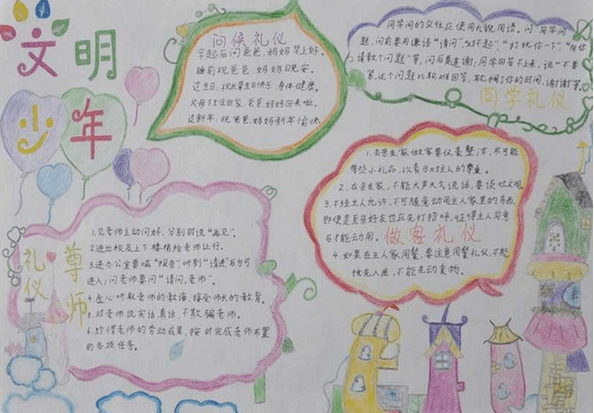 文明
少年
问候礼仪
早起后问爸爸、妈妈早上好。
睡前祝爸爸、妈妈晚安。
过生日,祝长辈生日快乐,身体健康。
父母下班回家,爸爸、妈妈回来啦。
过新年,祝爸爸、妈妈新年愉快
同学间的交往应使用礼貌用语。问同学问
题,问前要用谦语“请问”、“对不起”、“打扰你一下”、“向你
请教个问题”等,问后要道谢,同学回答不上来,说“不要
紧,这个问题比较难回答,耽搁了你的时间,谢谢”等
同学礼仪
1.去亲友家做客要仪表整洁,尽可能
带些小礼品,以表示对主人的尊重。
2.在亲友家,不能大声大气说话,要谈吐文明
3.不经主人允许,不可随意动用主人家里的东西,
即使是至亲好友也应先打招呼,征得主人同意
后才能动用。
做客礼仪
4.如果在主人家用餐,要注意用餐礼仪,不能
抢先入座,不能先动食物。
1.见老师主动问好,分别时说“再见”。
2.进出校及上下楼梯给老师让行。
3.进办公室要喊“报告”,听到“请进”后方可
进入;问老师要问“请问,老师”。
4.虚心听取老师的教诲,接受师长的教育。
5.对老师说实话、真话,不欺骗老师。
6.珍惜老师的劳动成果,按时完成老师布置
的各项任务。
尊师
礼仪